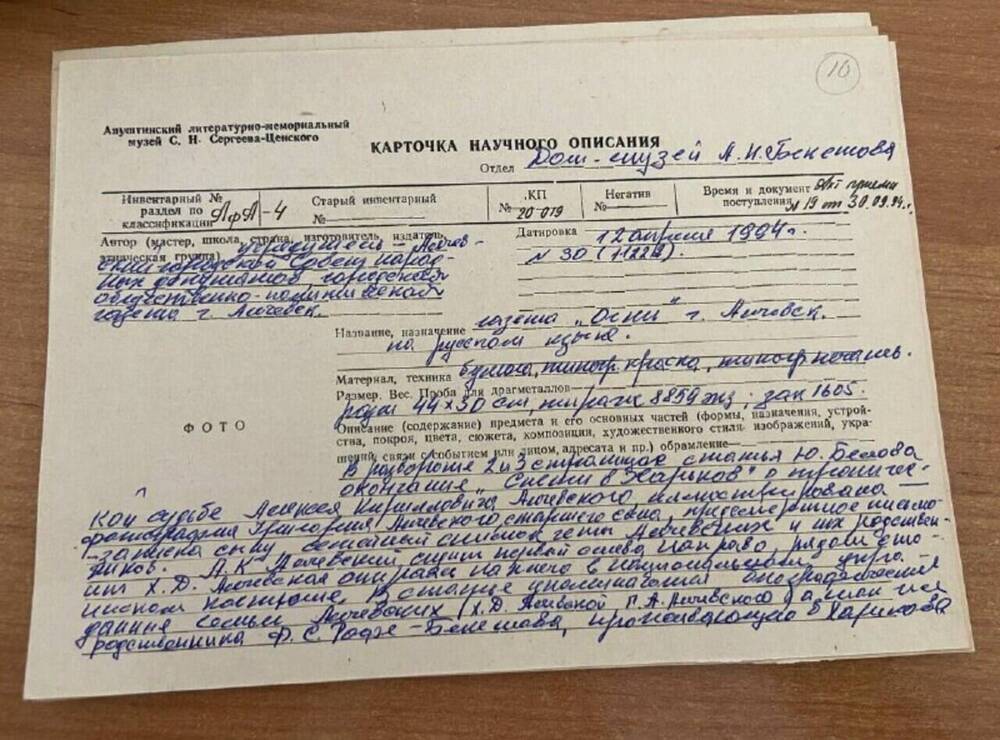 10
Алуштинский литературно-мемориальный
музей С. Н. Сергеева-Ценского
КАРТОЧКА НАУЧНОГО ОПИСАНИЯ
Отдел Дом-музей А.Н. Бекетова
Инвентарный № раздел по классификации АфА-4
Старый инвентарный №
КП № 20 019
Негатив №
Время и документ поступления Акт приема № 19 от 30.09.94г.
Автор (мастер, школа, страна, изготовитель, издатель,
этническая группа) учредитель – Алчев-
ский городской Совет народ-
ных депутатов, городская
общественно-политическая
газета г. Алчевск.
Датировка 12 апреля 1994г.
№ 30 (7122)
Название, назначение газета „Огни" г. Алчевск.
на русском языке.
Материал, техника бумага, типогр. краска, типогр. печать.
Размер. Вес. Проба для драгметаллов
разм 44×30 см, тираж 8859 экз; зак 1605.
ФОТО
Описание (содержание) предмета и его основных частей (формы, назначения, устрой-
ства, покроя, цвета, сюжета, композиции, художественного стиля изображений, укра-
шений, связи с событием или лицом, адресата и пр.) обрамление
В развороте 2 и 3 страницах статья Ю. Белова
окончание „Снегии в Харьков" о трагичес-
кой судьбе Алексея Кирилловича Алчевского, иллюстрирована
фотография Григория Алчевского старшего сына, предсмертное письмо
-записка сыну семейный снимок четы Алчевских и их родствен-
ников. А.К. Алчевский сидит первый слева направо, рядом сто-
ит Х.Д. Алчевская опираясь на него в национальном укра-
инском костюме. В статье упоминается
дания семьи Алчевских (Х.Д. Алчевской Г.А. Алчевского) а также
родственника Ф.С. Рофе-Бекетова, проживающую в Харькове